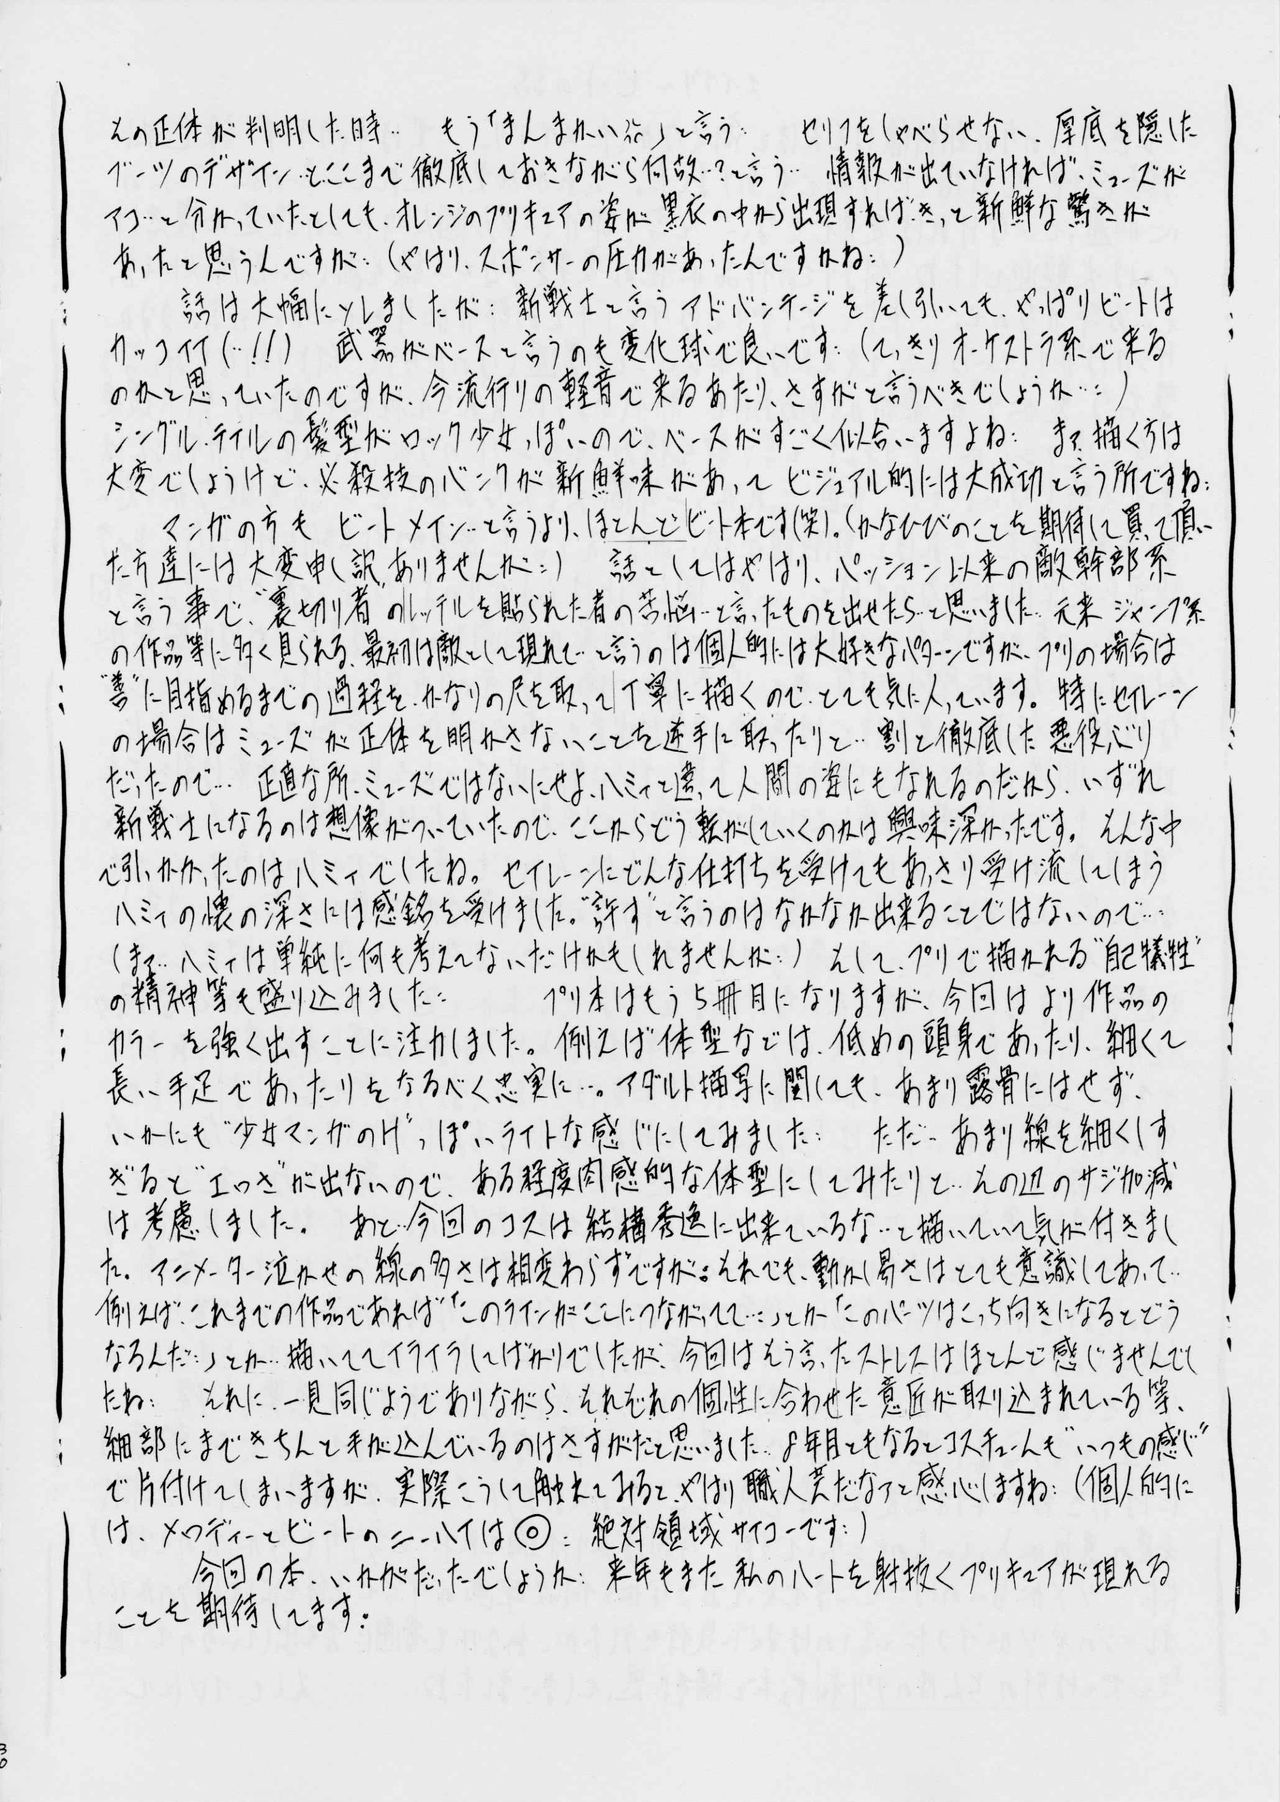 その正体が判明した時… もう「まんまかい※」と言う… セリフをしゃべらせない、厚底を隠した
ブーツのデザイン…とここまで徹底しておきながら何故…?と言う… 情報が出ていなければ、ミューズが
アコ…と分かっていたとしても、オレンジのプリキュアの姿が黒衣の中から出現すれば、きっと新鮮な驚きが
あったと思うんですが…(やはり、スポンサーの圧力があったんですかね…)
話は大幅にソレましたが… 新戦士と言うアドバンテージを差し引いても、やっぱりビートは
カッコイイ(…!!) 武器がベースと言うのも変化球で良いです…(てっきりオーケストラ系で来る
のかと思っていたのですが、今流行りの軽音で来るあたり、さすがと言うべきでしょうか…)
シングル・テイルの髪型がロック少女っぽいので、ベースがすごく似合いますよね… まァ、描く方は
大変でしょうけど、必殺技のバンクが新鮮味があって ビジュアル的には大成功と言う所ですね…
マンガの方も ビートメイン…と言うより、ほとんどビート本です(笑)。(かなひびのことを期待して買って頂い
た方達には大変申し訳ありませんが…) 話としてはやはり、パッション以来の敵幹部系
と言う事で、“裏切り者”のレッテルを貼られた者の苦悩…と言ったものを出せたら…と思いました… 元来ジャンプ系
の作品等に多く見られる、最初は敵として現れて…と言うのは個人的には大好きなパターンですが、プリの場合は
“善”に目指めるまでの過程を、かなりの尺を取って丁寧に描くので、とても気に入っています。特にセイレーン
の場合はミューズが正体を明かさないことを逆手に取ったりと… 割と徹底した悪役ぶり
だったので… 正直な所、ミューズではないにせよ、ハミィと違って人間の姿にもなれるのだから、いずれ
新戦士になるのは想像がついていたので、ここからどう転がしていくのかは興味深かったです。そんな中
で引っかかったのはハミィでしたね。セイレーンにどんな仕打ちを受けてもあっさり受け流してしまう
ハミィの懐の深さには感銘を受けました。“許す”と言うのはなかなか出来ることではないので…
(まァ…ハミィは単純に何も考えてないだけかもしれませんが…) そして、プリで描かれる“自己犠牲”
の精神等も盛り込みました… プリ本はもう5冊目になりますが、今回はより作品の
カラーを強く出すことに注力しました。例えば体型などは、低めの頭身であったり、細くて
長い手足であったりをなるべく忠実に…。アダルト描写に関しても、あまり露骨にはせず、
いかにも“少女マンガのH”っぽいライトな感じにしてみました… ただ…あまり線を細くしす
ぎると“エロさ”が出ないので、ある程度肉感的な体型にしてみたりと…その辺のサジ加減
は考慮しました。 あと…今回のコスは結構秀逸に出来ているな…と描いていて気が付きまし
た。アニメーター泣かせの線の多さは相変わらずですが。それでも、動かし易さはとても意識してあって…
例えば、これまでの作品であれば「このラインがここにつながってて…」とか「このパーツはこっち向きになるとどう
なるんだ…」とか…描いててイライラしてばかりでしたが、今回はそう言ったストレスはほとんど感じませんでし
たね… それに、一見同じようでありながら、それぞれの個性に合わせた意匠が取り込まれている等、
細部にまできちんと手が込んでいるのはさすがだと思いました。8年目ともなるとコスチュームも“いつもの感じ”
で片付けてしまいますが、実際こうして触れてみると、やはり職人芸だなァと感心しますね…(個人的に
は、メロディーとビートのニーハイは◎… 絶対領域サイコーです…)
今回の本、いかがだったでしょうか… 来年もまた私のハートを射抜くプリキュアが現れる
ことを期待してます。
30